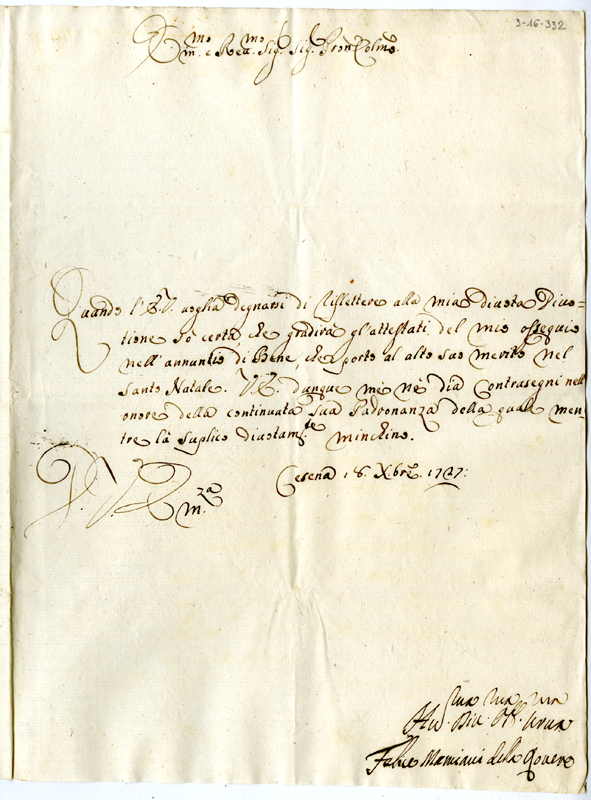 3-16-332
Em.mo e Rev.mo Sig. Sig. Pron Colmo.
Quando l'E.V. voglia degnarsi di riflettere alla mia divota Divo=
tione so' certa che gradirà gl'attestati del mio ossequio
nell'annuntio di Bene, che porto al alto suo merito nel
Santo Natale. V.E. dunque me ne dia Contrasegni nell
onore della continuata sua Padronanza della quale men=
tre la suplico divotam.te m'inchino.
Cesena 18. Xbre. 1727:
D. V. E.
m.za
Hu. Div.
Felice Mamiani della Rovere